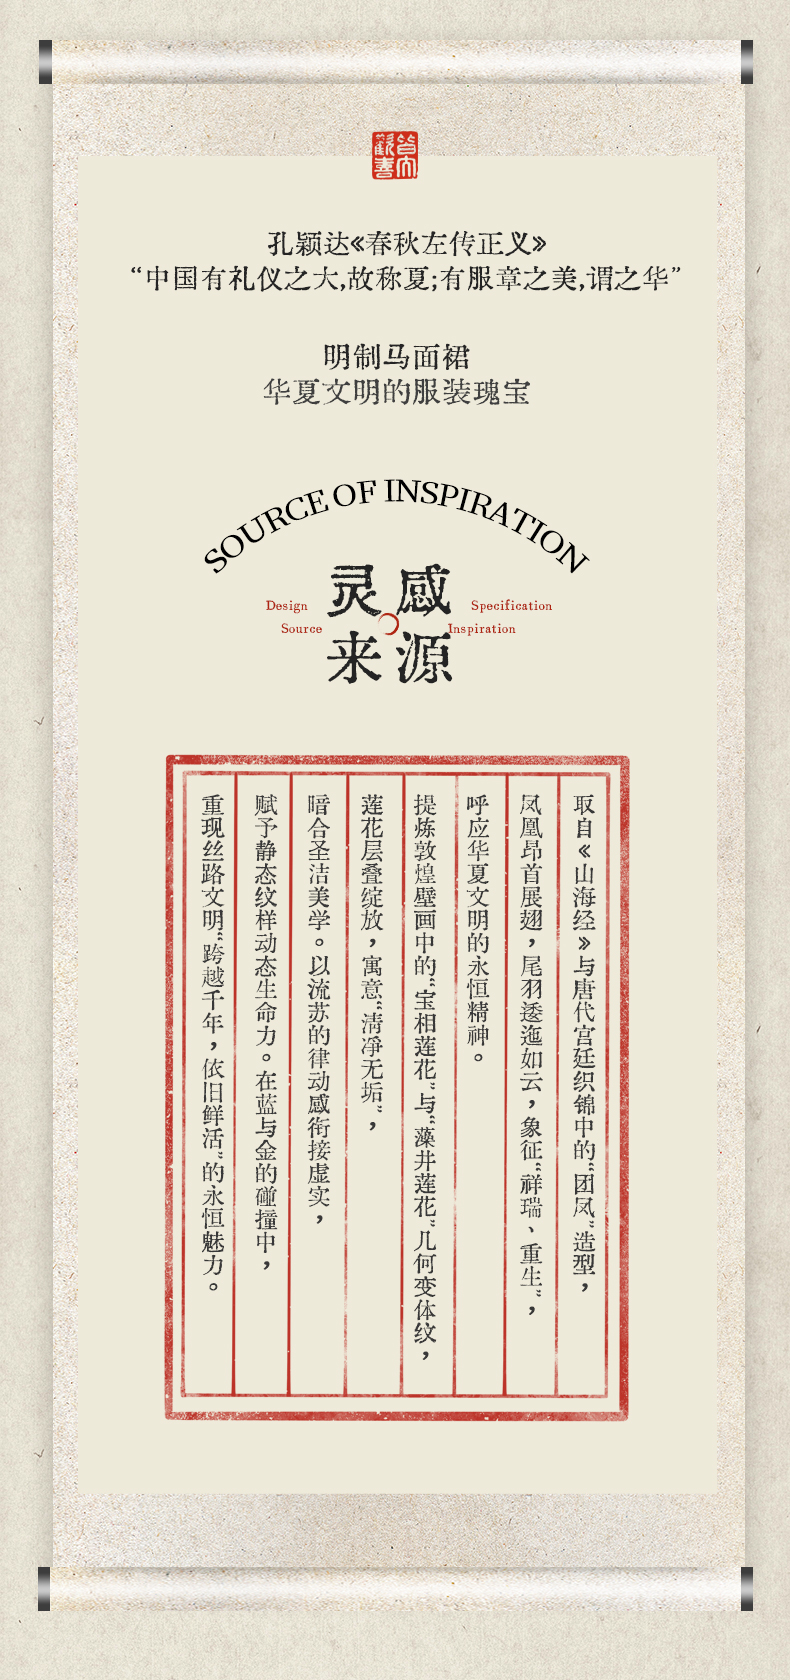 孔颖达《春秋左传正义》
“中国有礼仪之大,故称夏;有服章之美,谓之华”
明制马面裙
华夏文明的服装瑰宝
SOURCE OF INSPIRATION
灵感
来源
Design
Source
Specification
Inspiration
取自《山海经》与唐代宫廷织锦中的“团凤”造型，
凤凰昂首展翅，尾羽逶迤如云，象征“祥瑞、重生”，
呼应华夏文明的永恒精神。
提炼敦煌壁画中的“宝相莲花”与“藻井莲花”几何变体纹，
莲花层叠绽放，寓意“清净无垢”，
暗合圣洁美学。以流苏的律动感衔接虚实，
赋予静态纹样动态生命力。在蓝与金的碰撞中，
重现丝路文明“跨越千年，依旧鲜活”的永恒魅力。